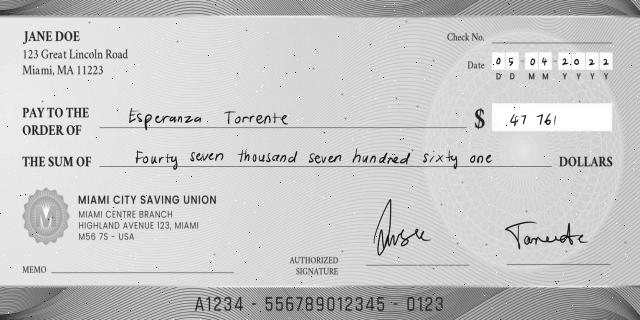 JANE DOE
123 Great Lincoln Road
Miami, MA 11223
Check No.
Date 05-04-2022
D D M M Y Y Y Y
PAY TO THE ORDER OF Esperanza Torrente $ 47 761
THE SUM OF Fourty seven thousand seven hundred sixty one DOLLARS
MIAMI CITY SAVING UNION
MIAMI CENTRE BRANCH
HIGHLAND AVENUE 123, MIAMI
M56 7S - USA
MEMO
AUTHORIZED SIGNATURE
A1234 - 556789012345 - 0123